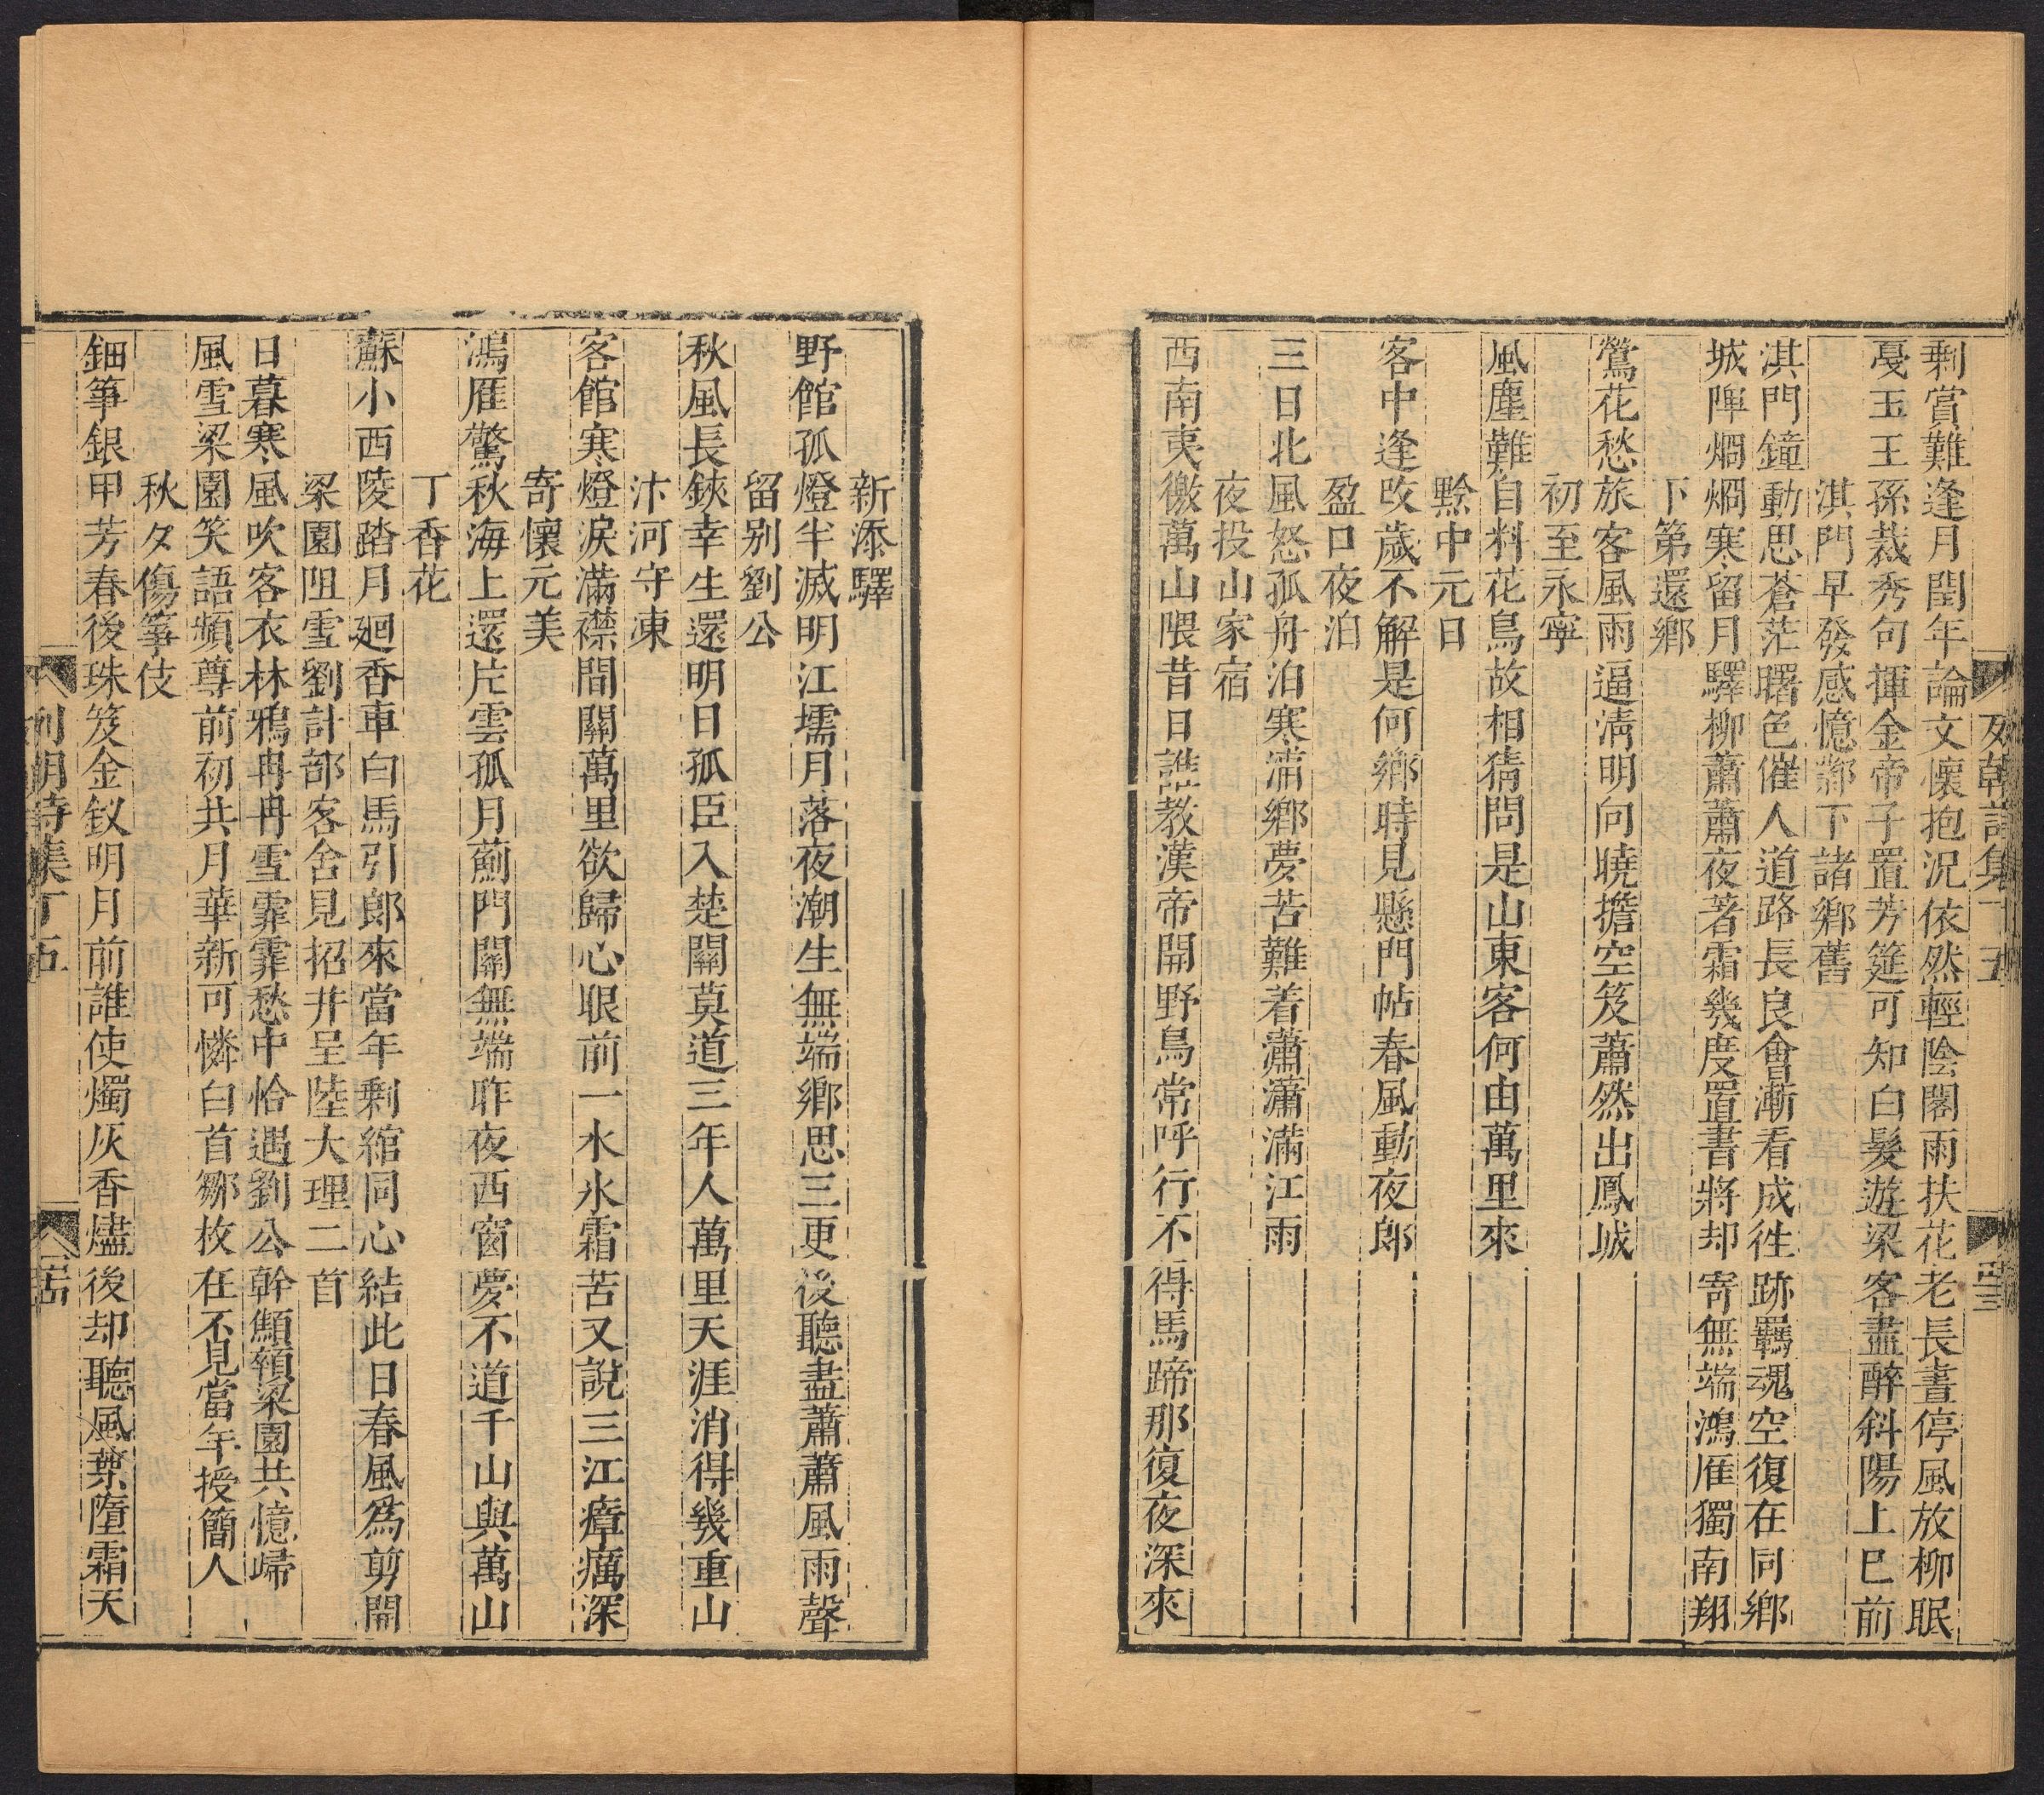 剩賞難逢月閏年論文懷抱況依然輕陰閣雨扶花老長晝停風放柳眠
戞玉王孫裁秀句揮金帝子置芳筵可知白髮遊梁客盡醉斜陽上巳前
淇門早發感憶鄴下諸鄉舊
淇門鐘動思蒼茫曙色催人道路長良會漸看成徃跡羈魂空復在同鄉
城陴烱烱寒留月驛柳蕭蕭夜著霜幾度置書將却寄無端鴻雁獨南翔
下第還鄉
鶯花愁旅客風雨逼淸明向曉擔空笈蕭然出鳳城
初至永寧
風塵難自料花鳥故相猜問是山東客何由萬里來
黔中元日
客中逢改歲不解是何鄉時見懸門帖春風動夜郎
盈口夜泊
三日北風怒孤舟泊寒浦鄉夢苦難着瀟瀟滿江雨
夜投山家宿
西南夷徼萬山隈昔日誰教漢帝開野鳥常呼行不得馬蹄那復夜深來
列朝詩集丁五
新添驛
野館孤燈半滅明江壖月落夜潮生無端鄉思三更後聽盡蕭蕭風雨聲
留別劉公
秋風長鋏幸生還明日孤臣入楚關莫道三年人萬里天涯消得幾重山
汴河守凍
客館寒燈淚滿襟間關萬里欲歸心眼前一水氷霜苦又說三江瘴癘深
寄懷元美
鴻雁驚秋海上還片雲孤月薊門關無端昨夜西窗夢不道千山與萬山
丁香花
蘇小西陵踏月廻香車白馬引郎來當年剩綰同心結此日春風爲剪開
梁園阻雪劉計部客舍見招并呈陸大理二首
日暮寒風吹客衣林鴉冉冉雪霏霏愁中恰遇劉公幹顦顇梁園共憶歸
風雪梁園笑語頻尊前初共月華新可憐白首鄒枚在不見當年授簡人
秋夕傷箏伎
鈿箏銀甲芳春後珠笈金釵明月前誰使燭灰香燼後却聽風葉墮霜天
列朝詩集丁五